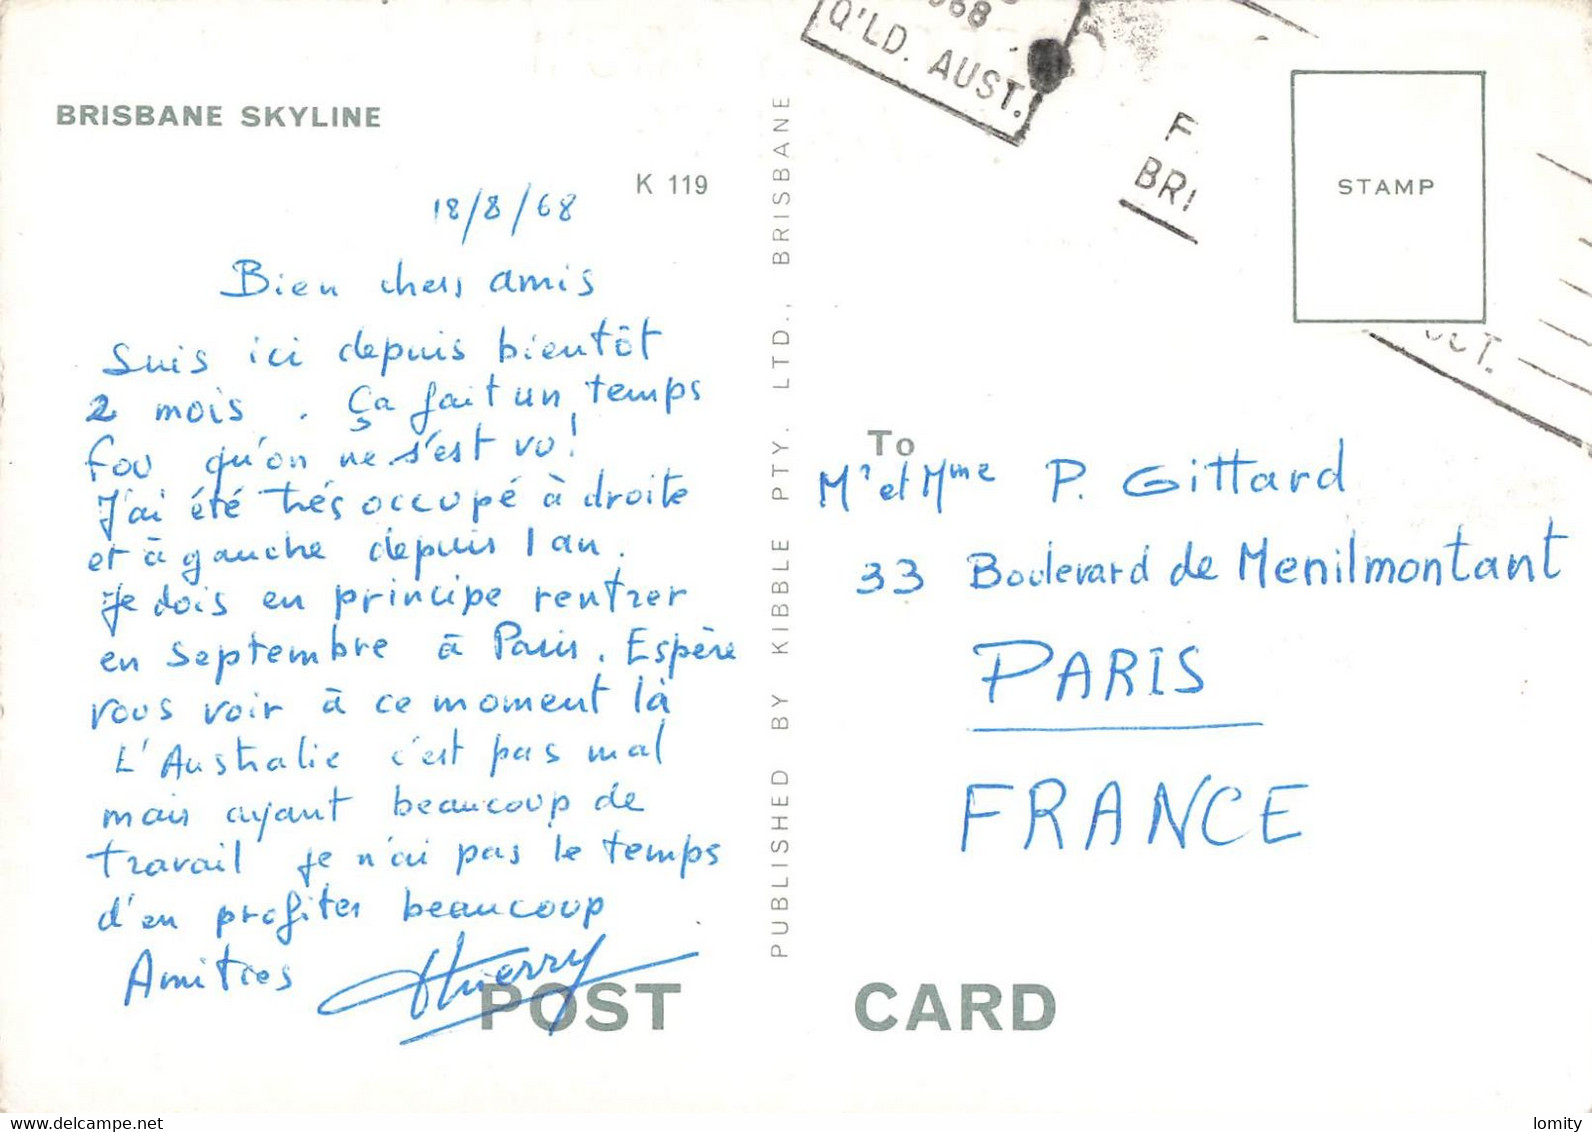 968
Q'LD. AUST.
F
BRI
STAMP
OCT.
BRISBANE SKYLINE
K 119
18/8/68
Bien chers amis
Suis ici depuis bientôt
2 mois. Ça fait un temps
fou qu'on ne s'est vu!
J'ai été très occupé à droite
et à gauche depuis 1 an.
Je dois en principe rentrer
en septembre à Paris. Espère
vous voir à ce moment là
L'Australie c'est pas mal
mais ayant beaucoup de
travail je n'ai pas le temps
d'en profiter beaucoup
Amitiés Thierry
PUBLISHED BY KIBBLE PTY. LTD., BRISBANE
To
Mr et Mme P. Gittard
33 Boulevard de Menilmontant
PARIS
FRANCE
POST CARD
www.delcampe.net
lomity